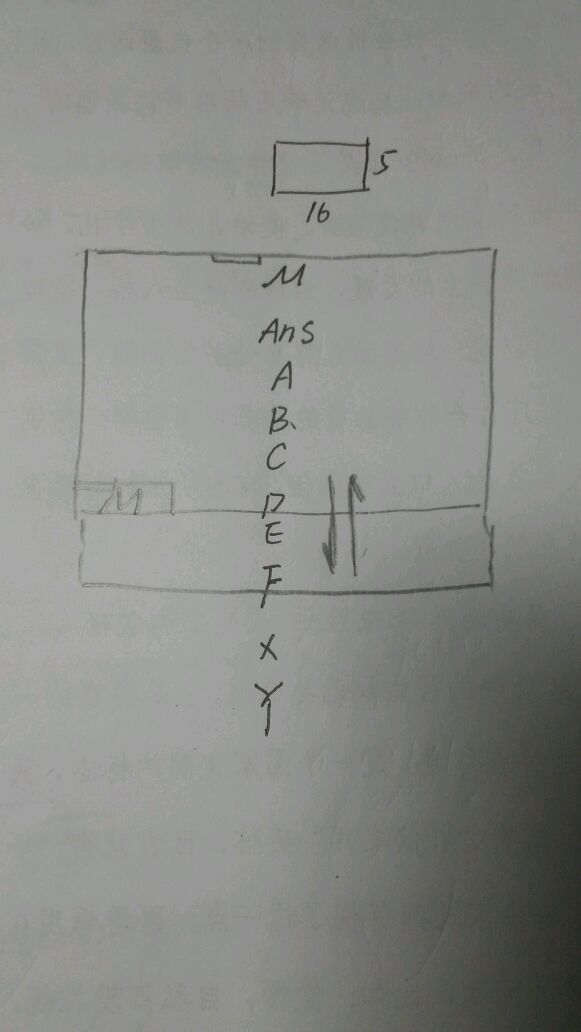 5
16
M
Ans
A
B
C
M
D
E
F
X
Y